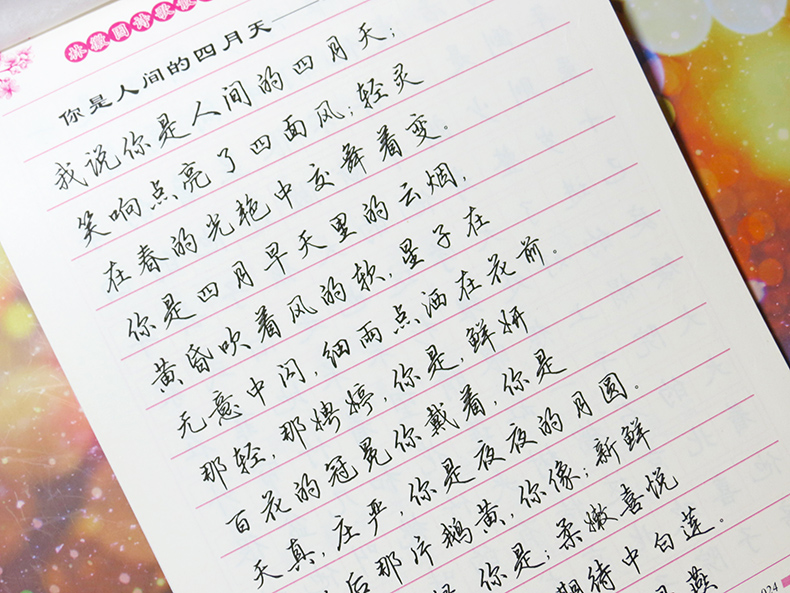 林徽因诗歌
你是人间的四月天——
我说你是人间的四月天;
笑响点亮了四面风;轻灵
在春的光艳中交舞着变。
你是四月早天里的云烟,
黄昏吹着风的软,星子在
无意中闪,细雨点洒在花前。
那轻,那娉婷,你是,鲜妍
百花的冠冕你戴着,你是
天真,庄严,你是夜夜的月圆。
后那片鹅黄,你像;新鲜
你是;柔嫩喜悦
期待中白莲。
燕
024